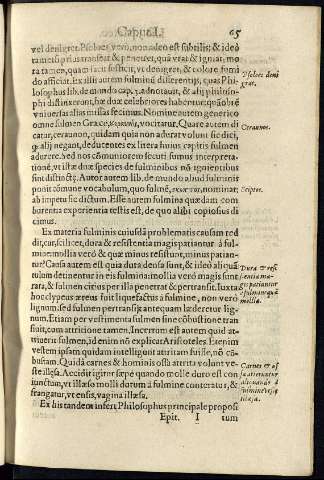 Caput I. 65
vel denigret. Psoloes vero, non adeo est subtilis: & ideo
tametsi prius transeat & penetret, quà vrat & igniat, mo
ra tamen, quam facit sufficit, vt denigret, & colore fumi
do afficiat. Ex illit autem fulminū differentijs, quas Phi-
losophus lib. de mundo cap. 3. adnotauit, & alij philoso-
phi distinxerunt, hæ duæ celebriores habentur: quāobrē
vniuersas alias missas fecimus. Nomine autem generico
omne fulmen Græcè, vocitatur. Quare autem di
catur, ceraunon, quidam quia non aderat volunt sic dici,
alij negant, deducentes ex litera huius capitis fulmen
adurere. Sed nos cōmuniorem secuti sumus interpreta-
tionē, vt istæ duæ species de fulminibus nō ignientibus
sint distinctę. Autor autem lib. de mundo aliud fulminis
ponit cōmune vocabulum, quo fulmē, nominat:
ab impetu sic dictum. Esse autem fulmina quædam com
burentia experientia testis est, de quo alibi copiosus di
cimus.
Ex materia fulminis cuiusdā problematis causam red
dit, cur, scilicet, dura & resistentia magis patiantur à ful-
mine: mollia verò & quæ minus resistunt, minus patian-
tur? Causa autem est quia dura densa sunt, & ideò aliquā
tulum detinentur in eis fulmina: mollia verò magis sunt
rara, & fulmen citius per illa penetrat & pertransit. Iuxta
hoc clypeus æreus fuit liquefactus à fulmine, non verò
lignum. sed fulmen pertransijt antequam læderetur lig-
num. Etiam per vestimenta fulmen sine cōbustione tran
siuit, com attritione tamen. Incerrom est autem quid at-
triuerit fulmen, id enim nō explicat Aristoteles. Etenim
vestem ipsam quidam intelligunt attritam fuisse, nō cō-
bustam. Quidā carnes & hominis ossa attrita volunt ve-
ste illęsa. Accidit igitur sæpe quando molle duro est con
iunctum, vt illæso molli durum à fulmine conteratur, &
frangatur, vt ensis, vagina illæsa.
Ex his tandem infert Philosophus principale proposi
Epit. I tum
Psoloes deni
grat.
Ceraunos.
Sciptos.
Dura & resi
stentia ma-
gis patiantur
à fulmine quā
mollia.
Carnes & os
sa atteruntur
aliquando à
fulmine veste
illæsa.